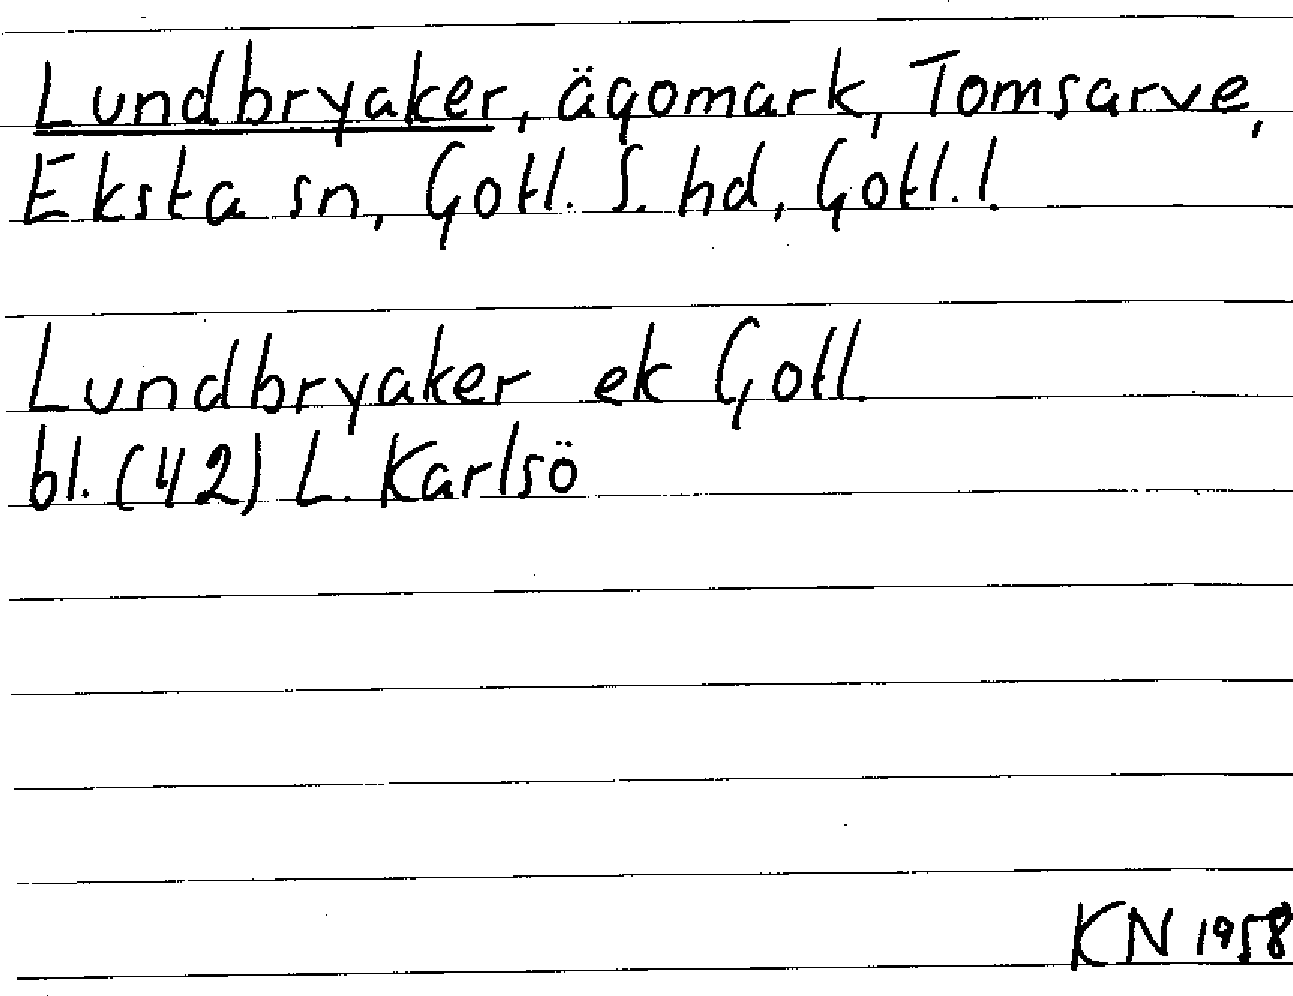 Lundbryaker, ägomark, Tomsarve,
Eksta sn, Gotl. S. hd, Gotl. l.
Lundbryaker ek Gotl.
bl. (42) L. Karlsö
KN 1958